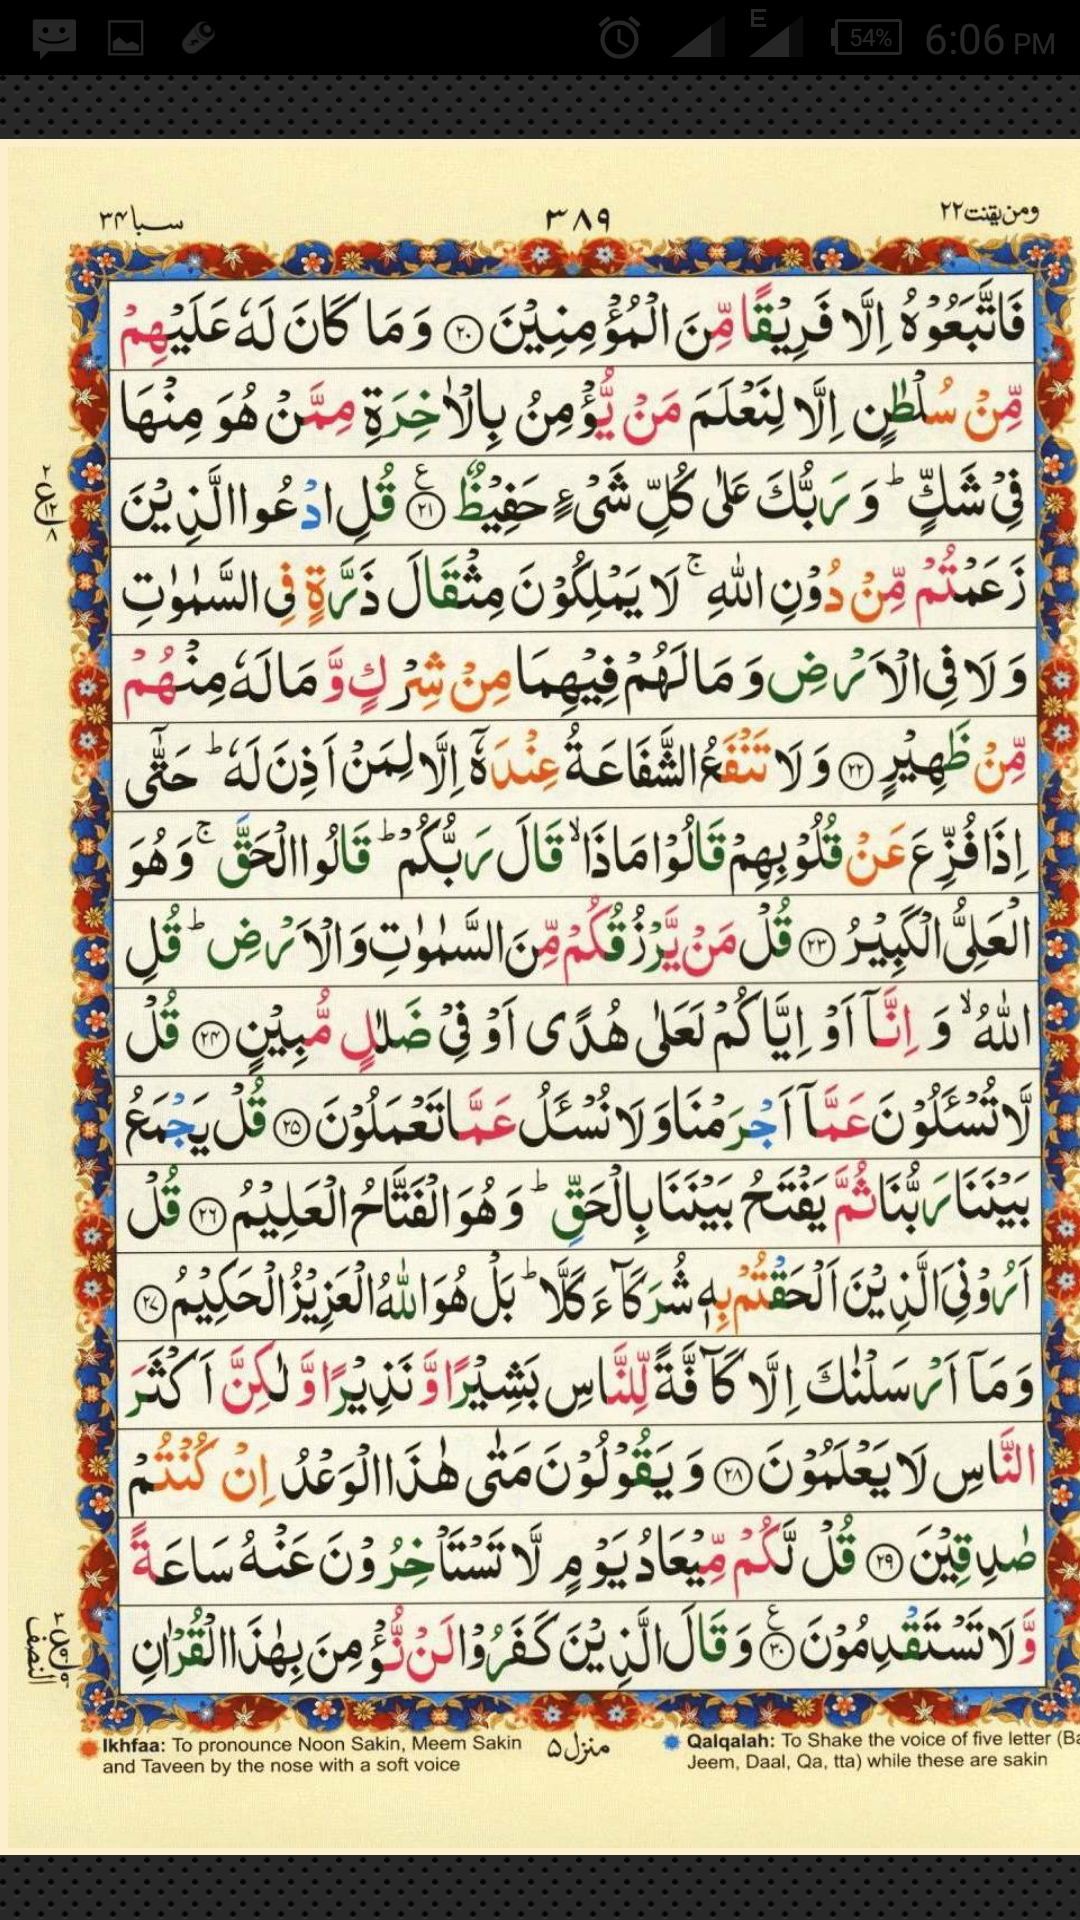 54% 6:06 PM
E
ومن یقنت ۲۲
۳۸۹
سبا ۳۴
فَاتَّبَعُوْهُ اِلَّا فَرِيْقًا مِّنَ الْمُؤْمِنِيْنَ ۲۰ وَمَا كَانَ لَهٗ عَلَيْهِمْ
مِّنْ سُلْطٰنٍ اِلَّا لِنَعْلَمَ مَنْ يُّؤْمِنُ بِالْاٰخِرَةِ مِمَّنْ هُوَ مِنْهَا
فِيْ شَكٍّ ؕ وَرَبُّكَ عَلٰى كُلِّ شَيْءٍ حَفِيْظٌ ۲۱ ع قُلِ ادْعُوا الَّذِيْنَ
زَعَمْتُمْ مِّنْ دُوْنِ اللّٰهِ ۚ لَا يَمْلِكُوْنَ مِثْقَالَ ذَرَّةٍ فِي السَّمٰوٰتِ
وَلَا فِي الْاَرْضِ وَمَا لَهُمْ فِيْهِمَا مِنْ شِرْكٍ وَّمَا لَهٗ مِنْهُمْ
مِّنْ ظَهِيْرٍ ۲۲ وَلَا تَنْفَعُ الشَّفَاعَةُ عِنْدَهٗٓ اِلَّا لِمَنْ اَذِنَ لَهٗ ؕ حَتّٰٓى
اِذَا فُزِّعَ عَنْ قُلُوْبِهِمْ قَالُوْا مَاذَا ۙ قَالَ رَبُّكُمْ ؕ قَالُوا الْحَقَّ ۚ وَهُوَ
الْعَلِيُّ الْكَبِيْرُ ۲۳ قُلْ مَنْ يَّرْزُقُكُمْ مِّنَ السَّمٰوٰتِ وَالْاَرْضِ ؕ قُلِ
اللّٰهُ ۙ وَاِنَّآ اَوْ اِيَّاكُمْ لَعَلٰى هُدًى اَوْ فِيْ ضَلٰلٍ مُّبِيْنٍ ۲۴ قُلْ
لَّا تُسْـَٔلُوْنَ عَمَّآ اَجْرَمْنَا وَلَا نُسْـَٔلُ عَمَّا تَعْمَلُوْنَ ۲۵ قُلْ يَجْمَعُ
بَيْنَنَا رَبُّنَا ثُمَّ يَفْتَحُ بَيْنَنَا بِالْحَقِّ ؕ وَهُوَ الْفَتَّاحُ الْعَلِيْمُ ۲۶ قُلْ
اَرُوْنِيَ الَّذِيْنَ اَلْحَقْتُمْ بِهٖ شُرَكَآءَ كَلَّا ؕ بَلْ هُوَ اللّٰهُ الْعَزِيْزُ الْحَكِيْمُ ۲۷
وَمَآ اَرْسَلْنٰكَ اِلَّا كَآفَّةً لِّلنَّاسِ بَشِيْرًا وَّنَذِيْرًا وَّلٰكِنَّ اَكْثَرَ
النَّاسِ لَا يَعْلَمُوْنَ ۲۸ وَيَقُوْلُوْنَ مَتٰى هٰذَا الْوَعْدُ اِنْ كُنْتُمْ
صٰدِقِيْنَ ۲۹ قُلْ لَّكُمْ مِّيْعَادُ يَوْمٍ لَّا تَسْتَاْخِرُوْنَ عَنْهُ سَاعَةً
وَّلَا تَسْتَقْدِمُوْنَ ۳۰ ع وَقَالَ الَّذِيْنَ كَفَرُوْا لَنْ نُّؤْمِنَ بِهٰذَا الْقُرْاٰنِ
۲ ع ۱۲ ۸
النصف
Ikhfaa: To pronounce Noon Sakin, Meem Sakin
and Taveen by the nose with a soft voice
منزل ۵
Qalqalah: To Shake the voice of five letter (Ba
Jeem, Daal, Qa, tta) while these are sakin